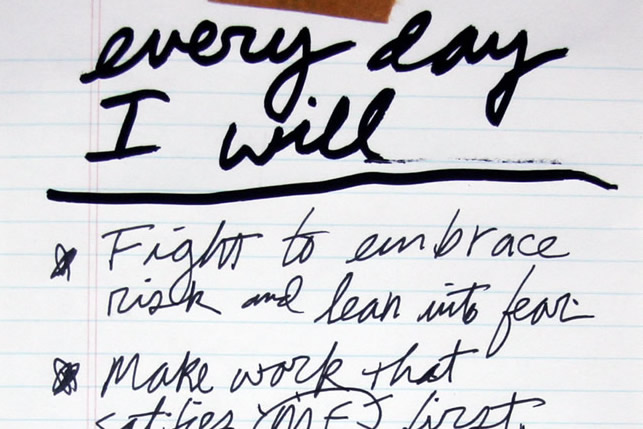 every day
I will
Fight to embrace
risk and lean into fear.
Make work that
satisfies (ME) first.